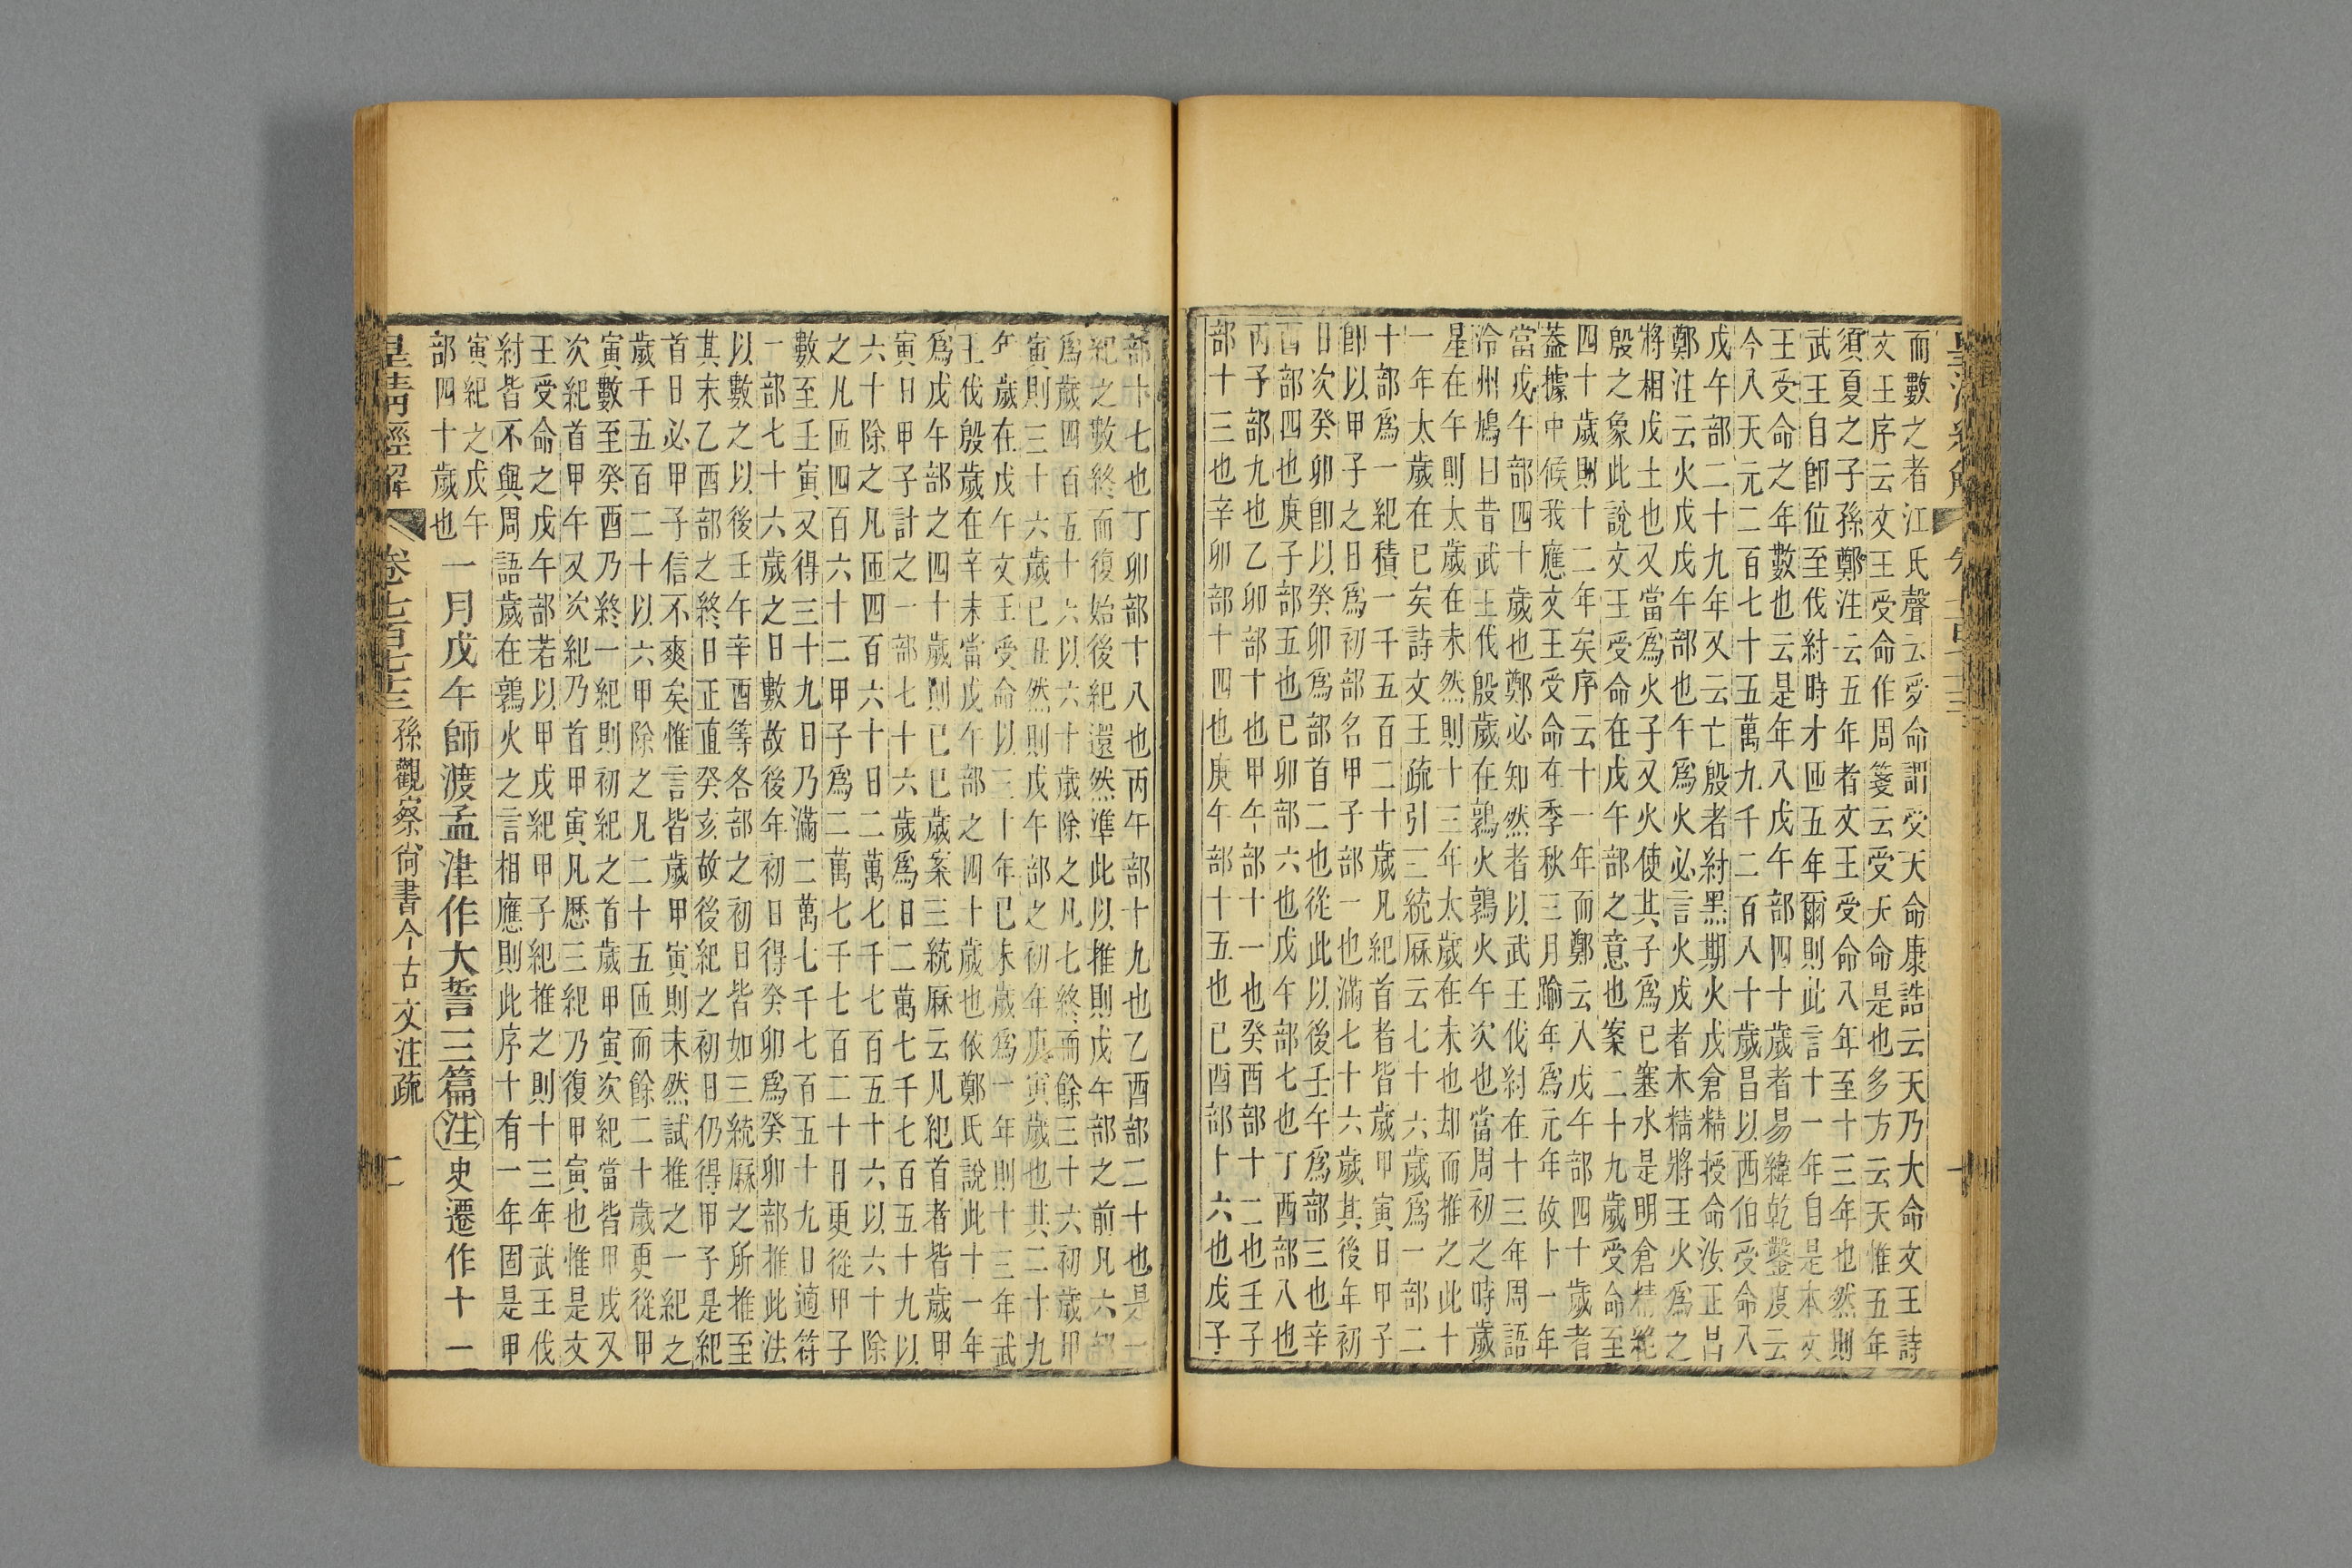 而數之者江氏聲云受命謂受天命康誥云天乃大命文王詩
文王序云文王受命作周箋云受天命是也多方云天惟五年
須夏之子孫鄭注云五年者文王受命八年至十三年也然則
武王自卽位至伐紂時才匝五年爾則此言十一年自是本文
王受命之年數也云是年八戊午部四十歲者易緯乾鑿度云
今八天元二百七十五萬九千二百八十歲昌以西伯受命入
戊午部二十九年又云亡殷者紂黑期火戊倉精授命汝正昌
鄭注云火戊戊午部也午爲火必言火戊者木精將王火爲之
將相戊土也又當爲火子又火使其子爲己塞水是明倉精絶
殷之象此說文王受命在戊午部之意也案二十九歲受命至
四十歲則十二年矣序云十一年而鄭云入戊午部四十歲者
蓋據中候我應文王受命在季秋三月踰年爲元年故十一年
當戊午部四十歲也鄭必知然者以武王伐紂在十三年周語
泠州鳩曰昔武王伐殷歲在鶉火鶉火午次也當周初之時歲
星在午則太歲在未然則十三年太歲在未也却而推之此十
一年太歲在巳矣詩文王疏引三統厤云七十六歲爲一部二
十部爲一紀積一千五百二十歲凡紀首者皆歲甲寅日甲子
卽以甲子之日爲初部名甲子部一也滿七十六歲其後年初
日次癸卯卽以癸卯爲部首二也從此以後壬午爲部三也辛
酉部四也庚子部五也己卯部六也戊午部七也丁酉部八也
丙子部九也乙卯部十也甲午部十一也癸酉部十二也壬子
部十三也辛卯部十四也庚午部十五也己酉部十六也戊子
部十七也丁卯部十八也丙午部十九也乙酉部二十也是一
紀之數終而復始後紀還然準此以推則戊午部之前凡六部
爲歲四百五十六以六十歲除之凡七終而餘三十六初歲甲
寅則三十六歲己丑然則戊午部之初年庚寅歲也其二十九
年歲在戊午文王受命以三十年己未歲爲一年則十三年武
王伐殷歲在辛未當戊午部之四十歲也依鄭氏說此十一年
爲戊午部之四十歲則己巳歲案三統厤云凡紀首者皆歲甲
寅日甲子計之一部七十六歲爲日二萬七千七百五十九以
六十除之凡匝四百六十日二萬七千七百五十六以六十除
之凡匝四百六十二甲子爲二萬七千七百二十日更從甲子
數至壬寅又得三十九日乃滿二萬七千七百五十九日適符
一部七十六歲之日數故後年初日得癸卯爲癸卯部推此法
以數之以後壬午辛酉等各部之初日皆如三統厤之所推至
其末乙酉部之終日正直癸亥故後紀之初日仍得甲子是紀
首日必甲子信不爽矣惟言皆歲甲寅則未然試推之一紀之
歲千五百二十以六甲除之凡二十五匝而餘二十歲更從甲
寅數至癸酉乃終一紀則初紀之首歲甲寅次紀當皆甲戌又
次紀首甲午又次紀乃首甲寅凡歷三紀乃復甲寅也惟是文
王受命之戊午部若以甲戌紀甲子紀推之則十三年武王伐
紂皆不與周語歲在鶉火之言相應則此序十有一年固是甲
寅紀之戊午
部四十歲也
一月戊午師渡孟津作大誓三篇注史遷作十一
皇清經解 卷七百七十三 孫觀察尚書今古文注疏 二